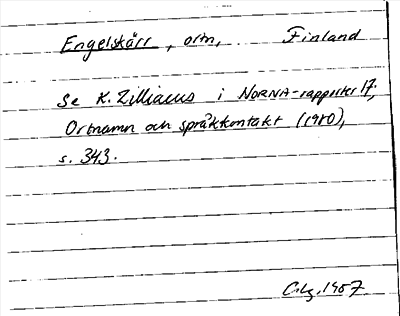 Engelskärr, ortn, Finland
Se K. Zilliacus i NORNA-rapporter 17,
Ortnamn och språkkontakt (1980),
s. 343.
1987